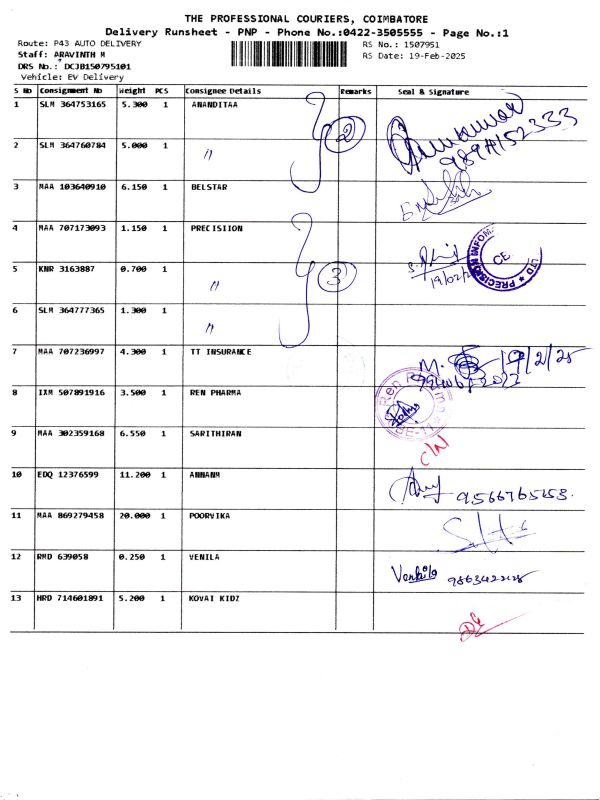 THE PROFESSIONAL COURIERS, COIMBATORE
Delivery Runsheet - PNP - Phone No.:0422-3505555 - Page No.:1
Route: P43 AUTO DELIVERY
RS No.: 1507951
Staff: ARAVINTH M
RS Date: 19-Feb-2025
DRS No.: DCJB150795101
Vehicle: EV Delivery
S No Consignment No Weight PCS Consignee Details Remarks Seal & Signature
1 SLM 364753165 5.300 1 ANANDITAA
2
2 SLM 364760784 5.000 1 "
3 MAA 103640910 6.150 1 BELSTAR
4 MAA 707173093 1.150 1 PRECISIION
5 KNR 3163887 0.700 1 "
3
6 SLM 364777365 1.300 1 "
7 MAA 707236997 4.300 1 TT INSURANCE
19/2/25
8 IXM 507891916 3.500 1 REN PHARMA
9 MAA 302359168 6.550 1 SARITHIRAN
C/N
10 EDQ 12376599 11.200 1 ANNANM
9566765253
11 MAA 869279458 20.000 1 POORVIKA
12 RMD 639058 0.250 1 VENILA
13 HRD 714601891 5.200 1 KOVAI KIDZ